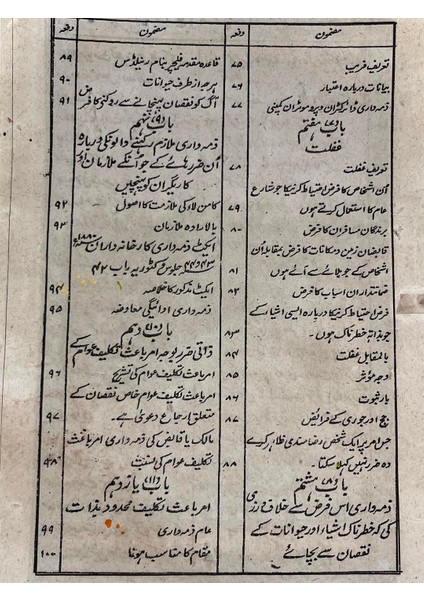 مضمون دفعہ
تعریف فریب ۷۵
بیانات دربارہ اعتبار ۷۶
ذمہ داری ڈائرکٹران و پروموٹران کمپنی ۷۷
باب (۷) ہفتم
غفلت
تعریف غفلت ۷۸
اُن اشخاص کا فرض احتیاط کرنیکا جو شارع
عام کا استعمال کرتے ہوں ۷۹
برندگان مسافران کا فرض ۸۰
قابضان زمین و مکانات کا فرض بمقابلہ اُن
اشخاص کے جو وہاں سے آئے ہوں ۸۱
ضمانتداران اسباب کا فرض ۸۲
فرض احتیاط کرنیکا دربارہ ایسی اشیار کے
جو بذاتہٖ خطرناک ہوں۔ ۸۳
بالمقابل غفلت ۸۴
وجہ مؤثر ۸۵
بار ثبوت ۸۶
جج اور جوری کے فرائض ۸۷
جس امر پر ایک شخص رضامندی ظاہر کرے
وہ ضرر نہیں کہلا سکتا۔ ۸۸
باب (۸) ہشتم
ذمہ داری اس فرض سے خلاف ورزی
کی کہ خطرناک اشیاء اور حیوانات کے
نقصان سے بچائے
مضمون دفعہ
قاعدہ مقدمہ فلیچر بنام رئیلنڈس ۸۹
ہرجہ از طرف حیوانات ۹۰
آگ کو نقصان پہنچانے سے روکنیکا فرض ۹۱
باب (۹) نہم
ذمہ داری ملازم رکھنے والونکی دربارہ
اُن ضررہائے کے جو اُنکے ملازمان اور
کاریگران کو پہنچیں
کامن لا کی ملازمت کا اصول ۹۲
بالا رادہ ملازمان ۹۳
ایکٹ ذمہ داری کارخانہ داران سنہ ۱۸۸۰ء
۴۳ و ۴۴ جلوس وکٹوریہ باب ۴۲
ایکٹ مذکور کا خلاصہ ۹۴
ذمہ داری ادائیگی معاوضہ ۹۵
باب (۱۰) دہم
ذاتی ضرر بوجہ امر باعث تکلیف عوام کے
امر باعث تکلیف عوام کی تشریح ۹۶
امر باعث تکلیف عوام خاص نقصان کے
متعلق ارجاع دعویٰ ہے۔ ۹۷
مالک یا قابض کی ذمہ داری امر باعث
تکلیف عوام کی نسبت ۹۸
باب (۱۱) یازدہم
امر باعث تکلیف محدود بذات
عام ذمہ داری ۹۹
مقام کا مناسب ہونا ۱۰۰